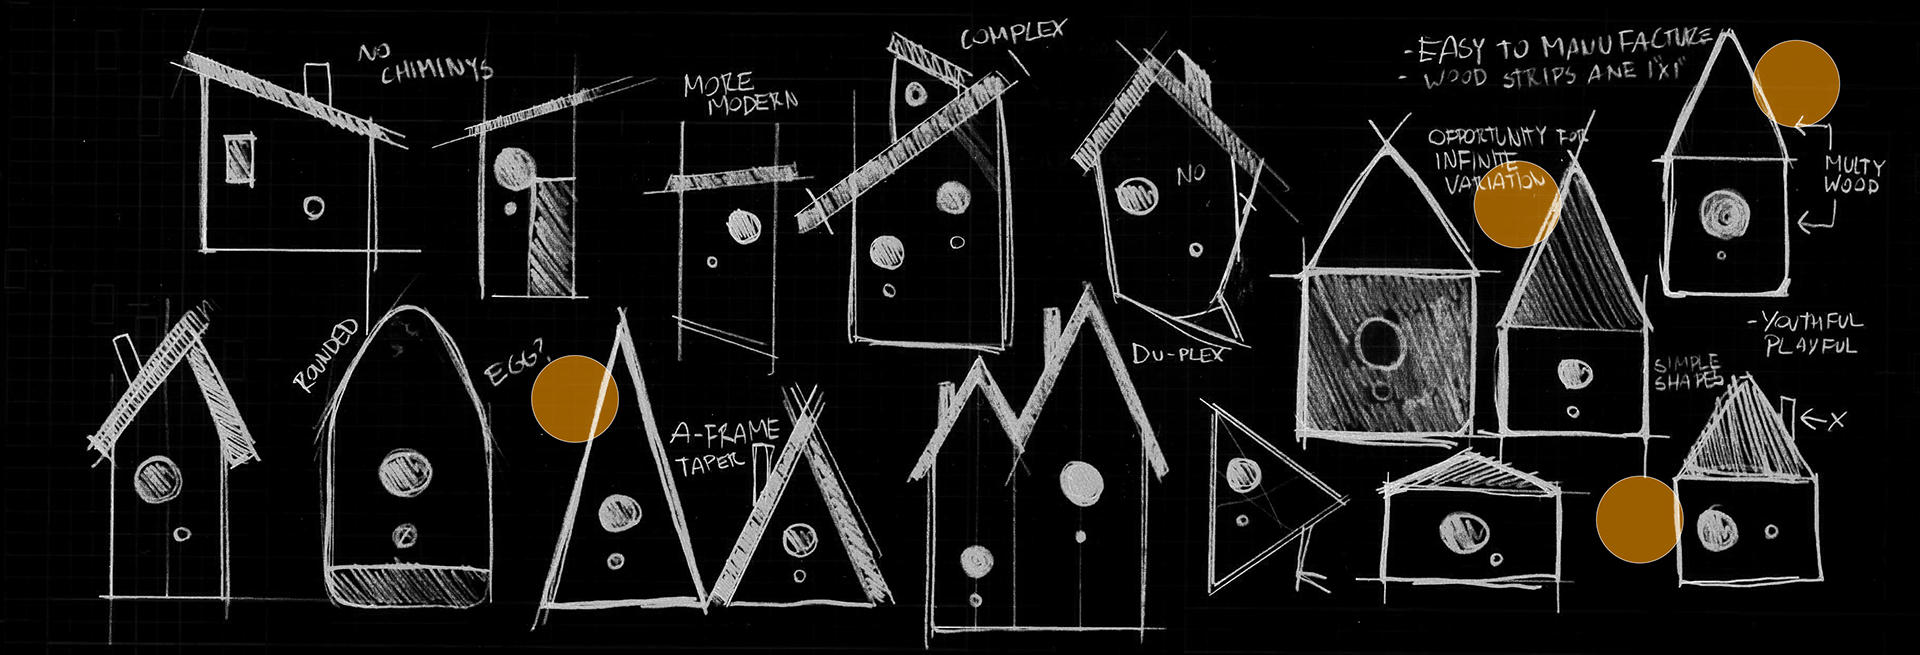 NO
CHIMINYS
MORE
MODERN
COMPLEX
NO
- EASY TO MANUFACTURE
- WOOD STRIPS ARE 1"X1"
OPPORTUNITY FOR
INFINITE
VARIATION
MULTY
WOOD
ROUNDED
EGG?
A-FRAME
TAPER
DU-PLEX
SIMPLE
SHAPES
- YOUTHFUL
PLAYFUL
X